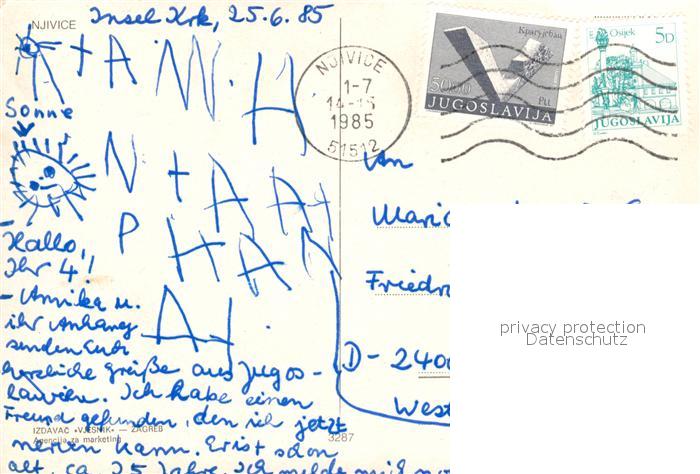 NJIVICE
Insel Krk, 25.6.85
Sonne
Hallo,
Ihr 4!
- Annika u.
ihr Anhang
senden Euch
herzliche Grüße aus Jugos-
lawien. Ich habe einen
Freund gefunden, den ich jetzt
nerven kann. Er ist schon
alt, ca. 25 Jahre. Ich melde mich
N + A A
P H A N
A
IZDAVAČ «VJESNIK» — ZAGREB
Agencija za marketing
3287
NJIVICE
1-7
14-15
1985
51512
50,00
JUGOSLAVIJA
Osijek
5D
JUGOSLAVIJA
An
Mari
Friedr
D - 240
West
privacy protection
Datenschutz